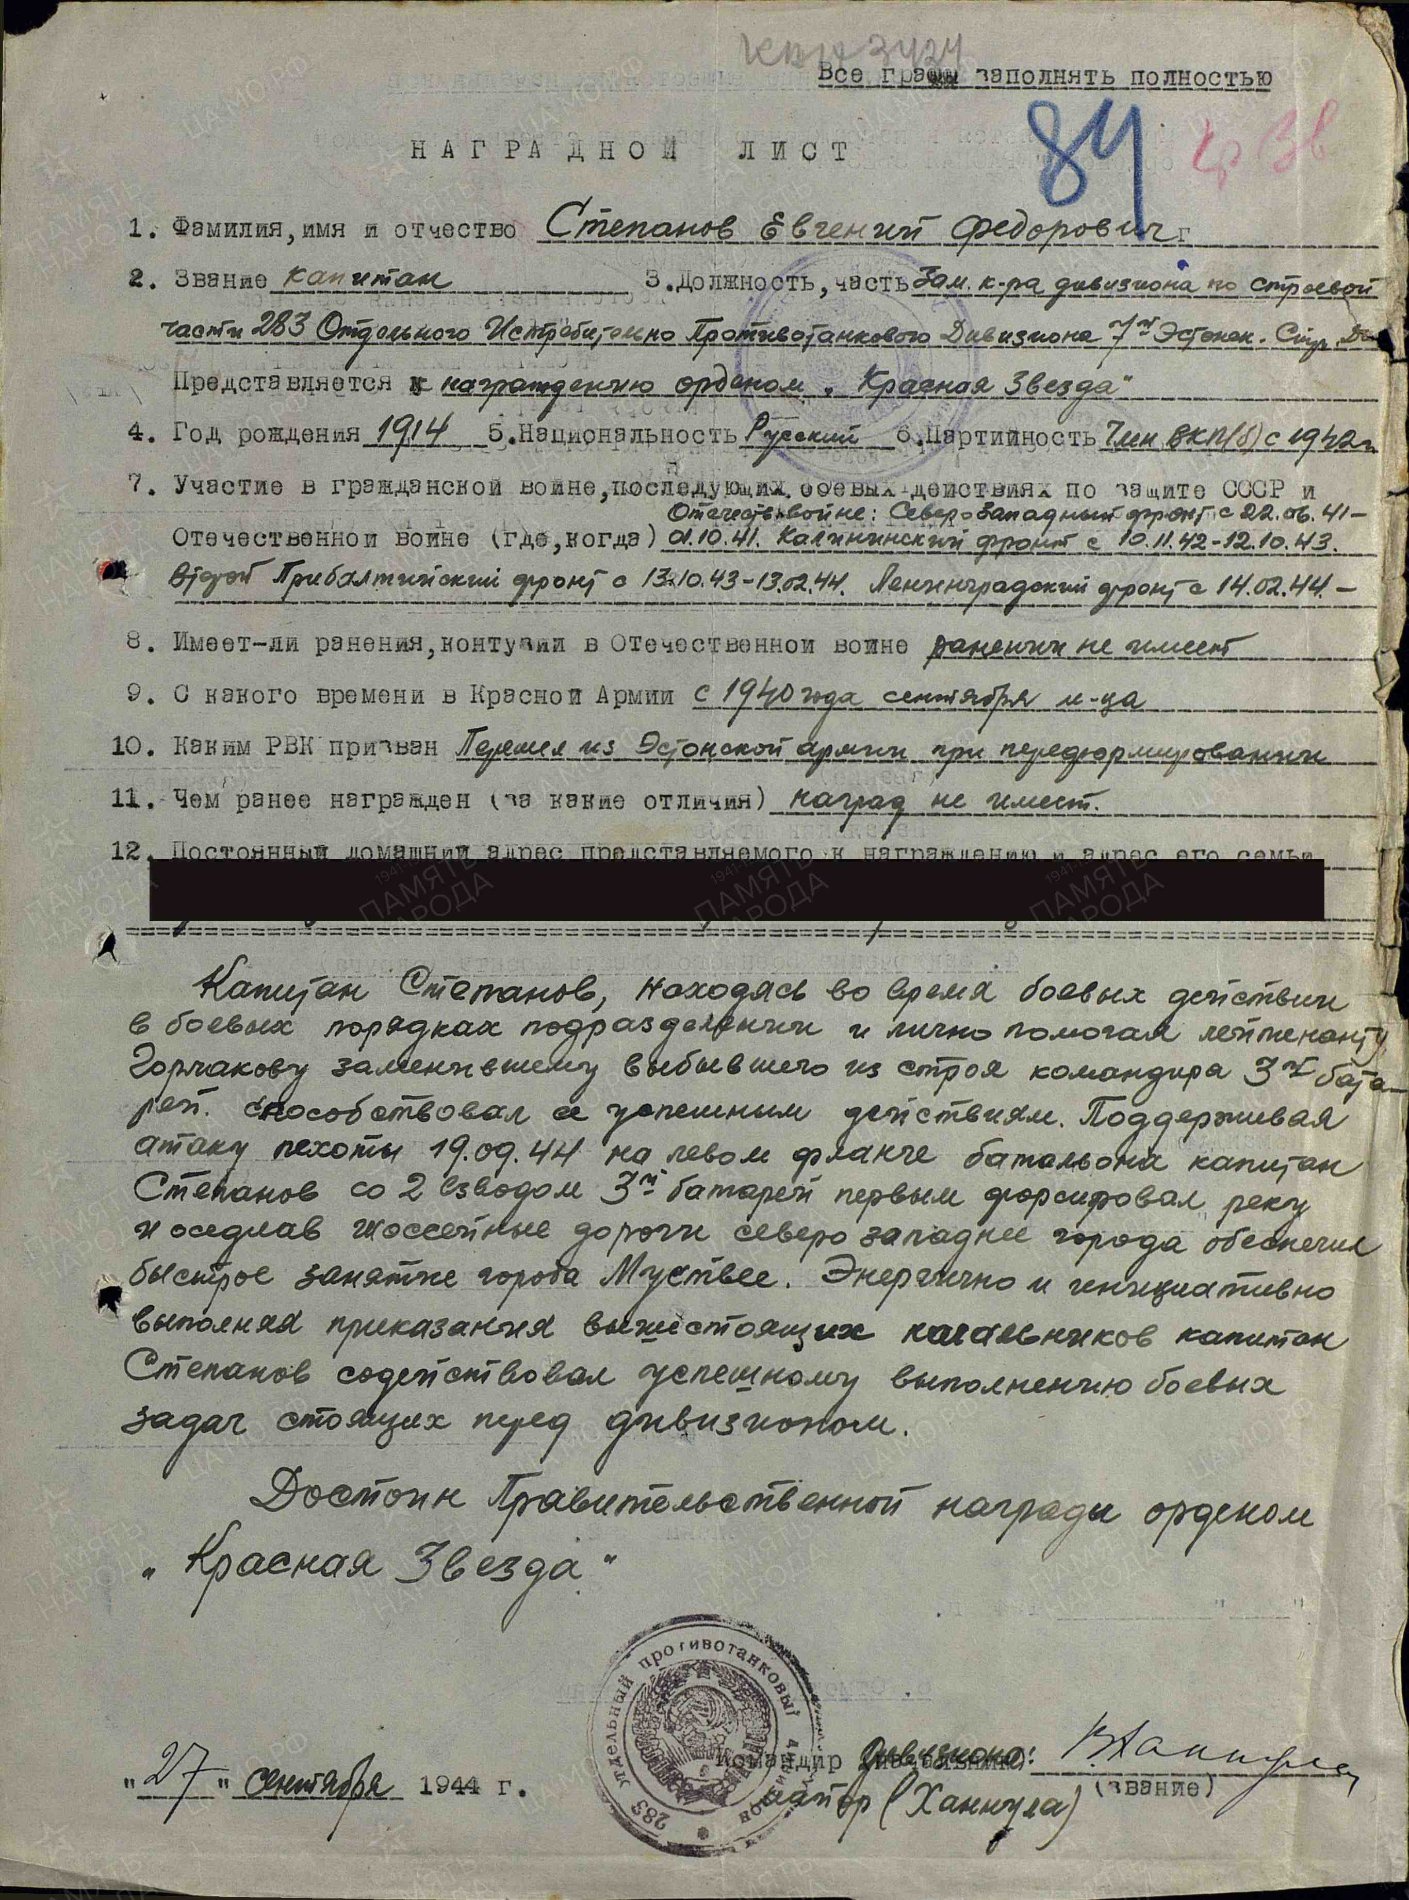 Все графы заполнять полностью
84
НАГРАДНОЙ ЛИСТ
1. Фамилия, имя и отчество Степанов Евгений Федорович
2. Звание капитан 3. Должность, часть Зам. к-ра дивизиона по строевой
части 283 Отдельного Истребительно Противотанкового Дивизиона 7й Эстонск. Стр. Див
Представляется к награждению орденом „Красная Звезда"
4. Год рождения 1914 5. Национальность Русский 6. Партийность Член ВКП(б) с 1942г
7. Участие в гражданской войне, последующих боевых действиях по защите СССР и
Отечеств. войне: Северо Западный фронт с 22.06.41-
Отечественной войне (где, когда) 01.10.41. Калининский фронт с 10.11.42-12.10.43.
Второй Прибалтийский фронт с 13.10.43-13.02.44. Ленинградский фронт с 14.02.44.-
8. Имеет-ли ранения, контузии в Отечественной войне ранений не имеет
9. С какого времени в Красной Армии с 1940 года сентября м-ца
10. Каким РВК призван Перешел из Эстонской армии при переформировании
11. Чем ранее награжден (за какие отличия) наград не имеет.
12. Постоянный домашний адрес представляемого к награждению и адрес его семьи
Капитан Степанов, находясь во время боевых действий
в боевых порядках подразделений и лично помогая лейтенанту
Горчакову заменившему выбывшего из строя командира 3й бата-
реи. способствовал ее успешным действиям. Поддерживая
атаку пехоты 19.09.44 на левом фланге батальона капитан
Степанов со 2 взводом 3й батареи первым форсировал реку
и оседлав шоссейные дороги северо западнее города обеспечил
быстрое занятие города Муствее. Энергично и инициативно
выполняя приказания вышестоящих начальников капитан
Степанов содействовал успешному выполнению боевых
задач стоящих перед дивизионом.
Достоин Правительственной награды орденом
„Красная Звезда"
283 отдельный противотанковый дивизион
Командир дивизиона:
"27" сентября 1944 г.
майор (Ханнула) (звание)